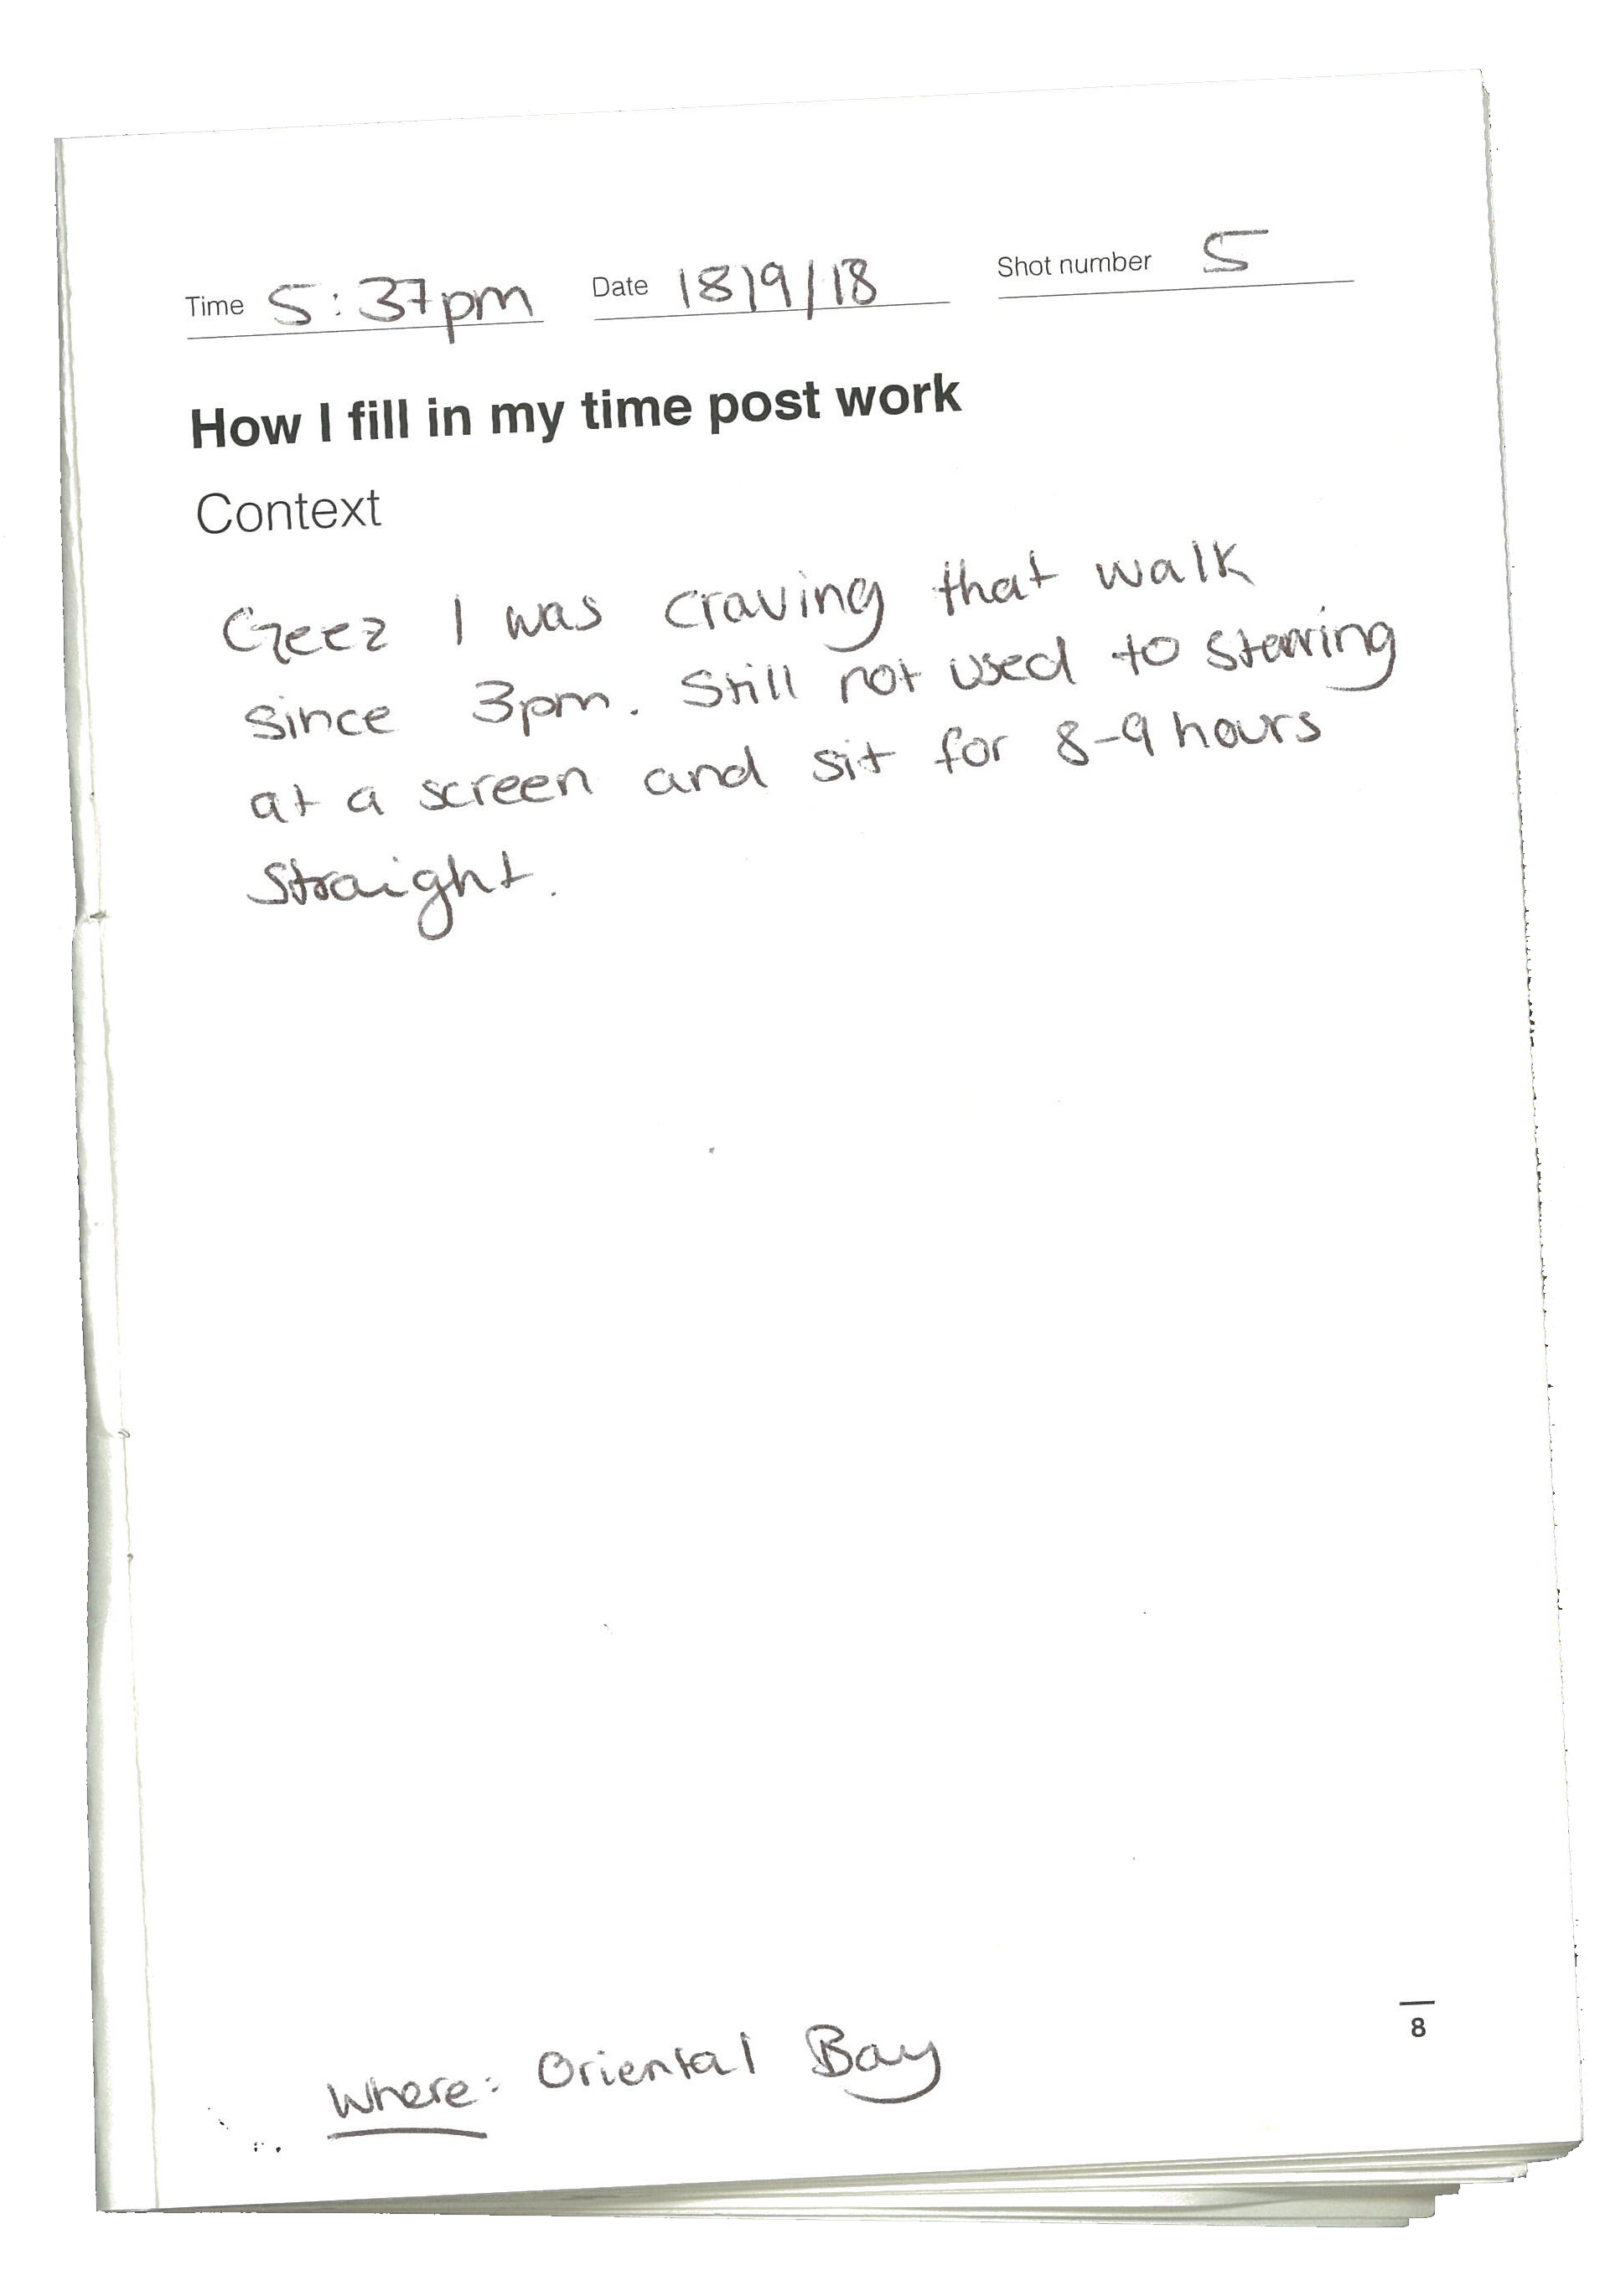 Time 5:37pm Date 18/9/18 Shot number 5
How I fill in my time post work
Context
Geez I was craving that walk
since 3pm. Still not used to starring
at a screen and sit for 8-9 hours
straight.
8
Where: Oriental Bay